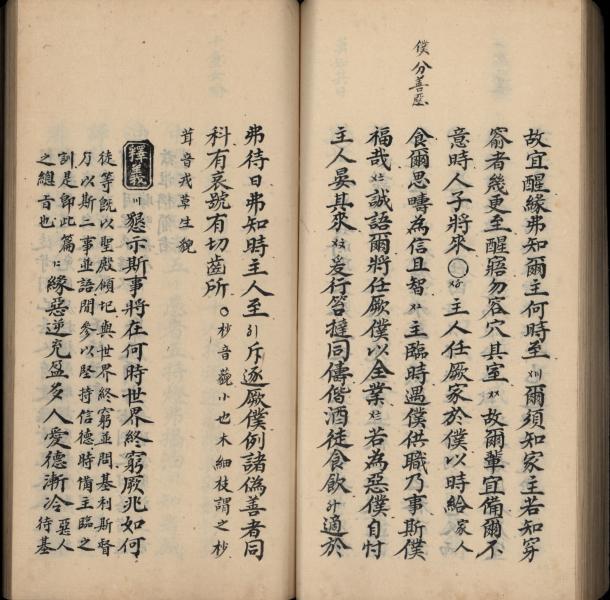 僕分善惡
故宜醒緣弗知爾主何時至爾須知家主若知穿
窬者幾更至醒寤勿容穴其室故爾輩宜備爾不
意時人子將來〇主人任厥家於僕以時給家人
食爾思疇為信且智主臨時遇僕供職乃事斯僕
福哉誠語爾將任厥僕以全業若為惡僕自忖
主人晏其來爰行笞撻同儔偕酒徒食飲適於
弗待日弗知時主人至斥逐厥僕例諸偽善者同
科有哀號有切齒所。杪音藐小也木細枝謂之杪
茸音戎草生貌
釋義懇示斯事將在何時世界終窮厥兆如何
徒等既以聖殿傾圮與世界終窮並問基利斯督
乃以斯二事並語間參以堅持信德時備主臨之
訓是即此篇
之總音也
緣惡逆充盈多人愛德漸冷
惡人
待基